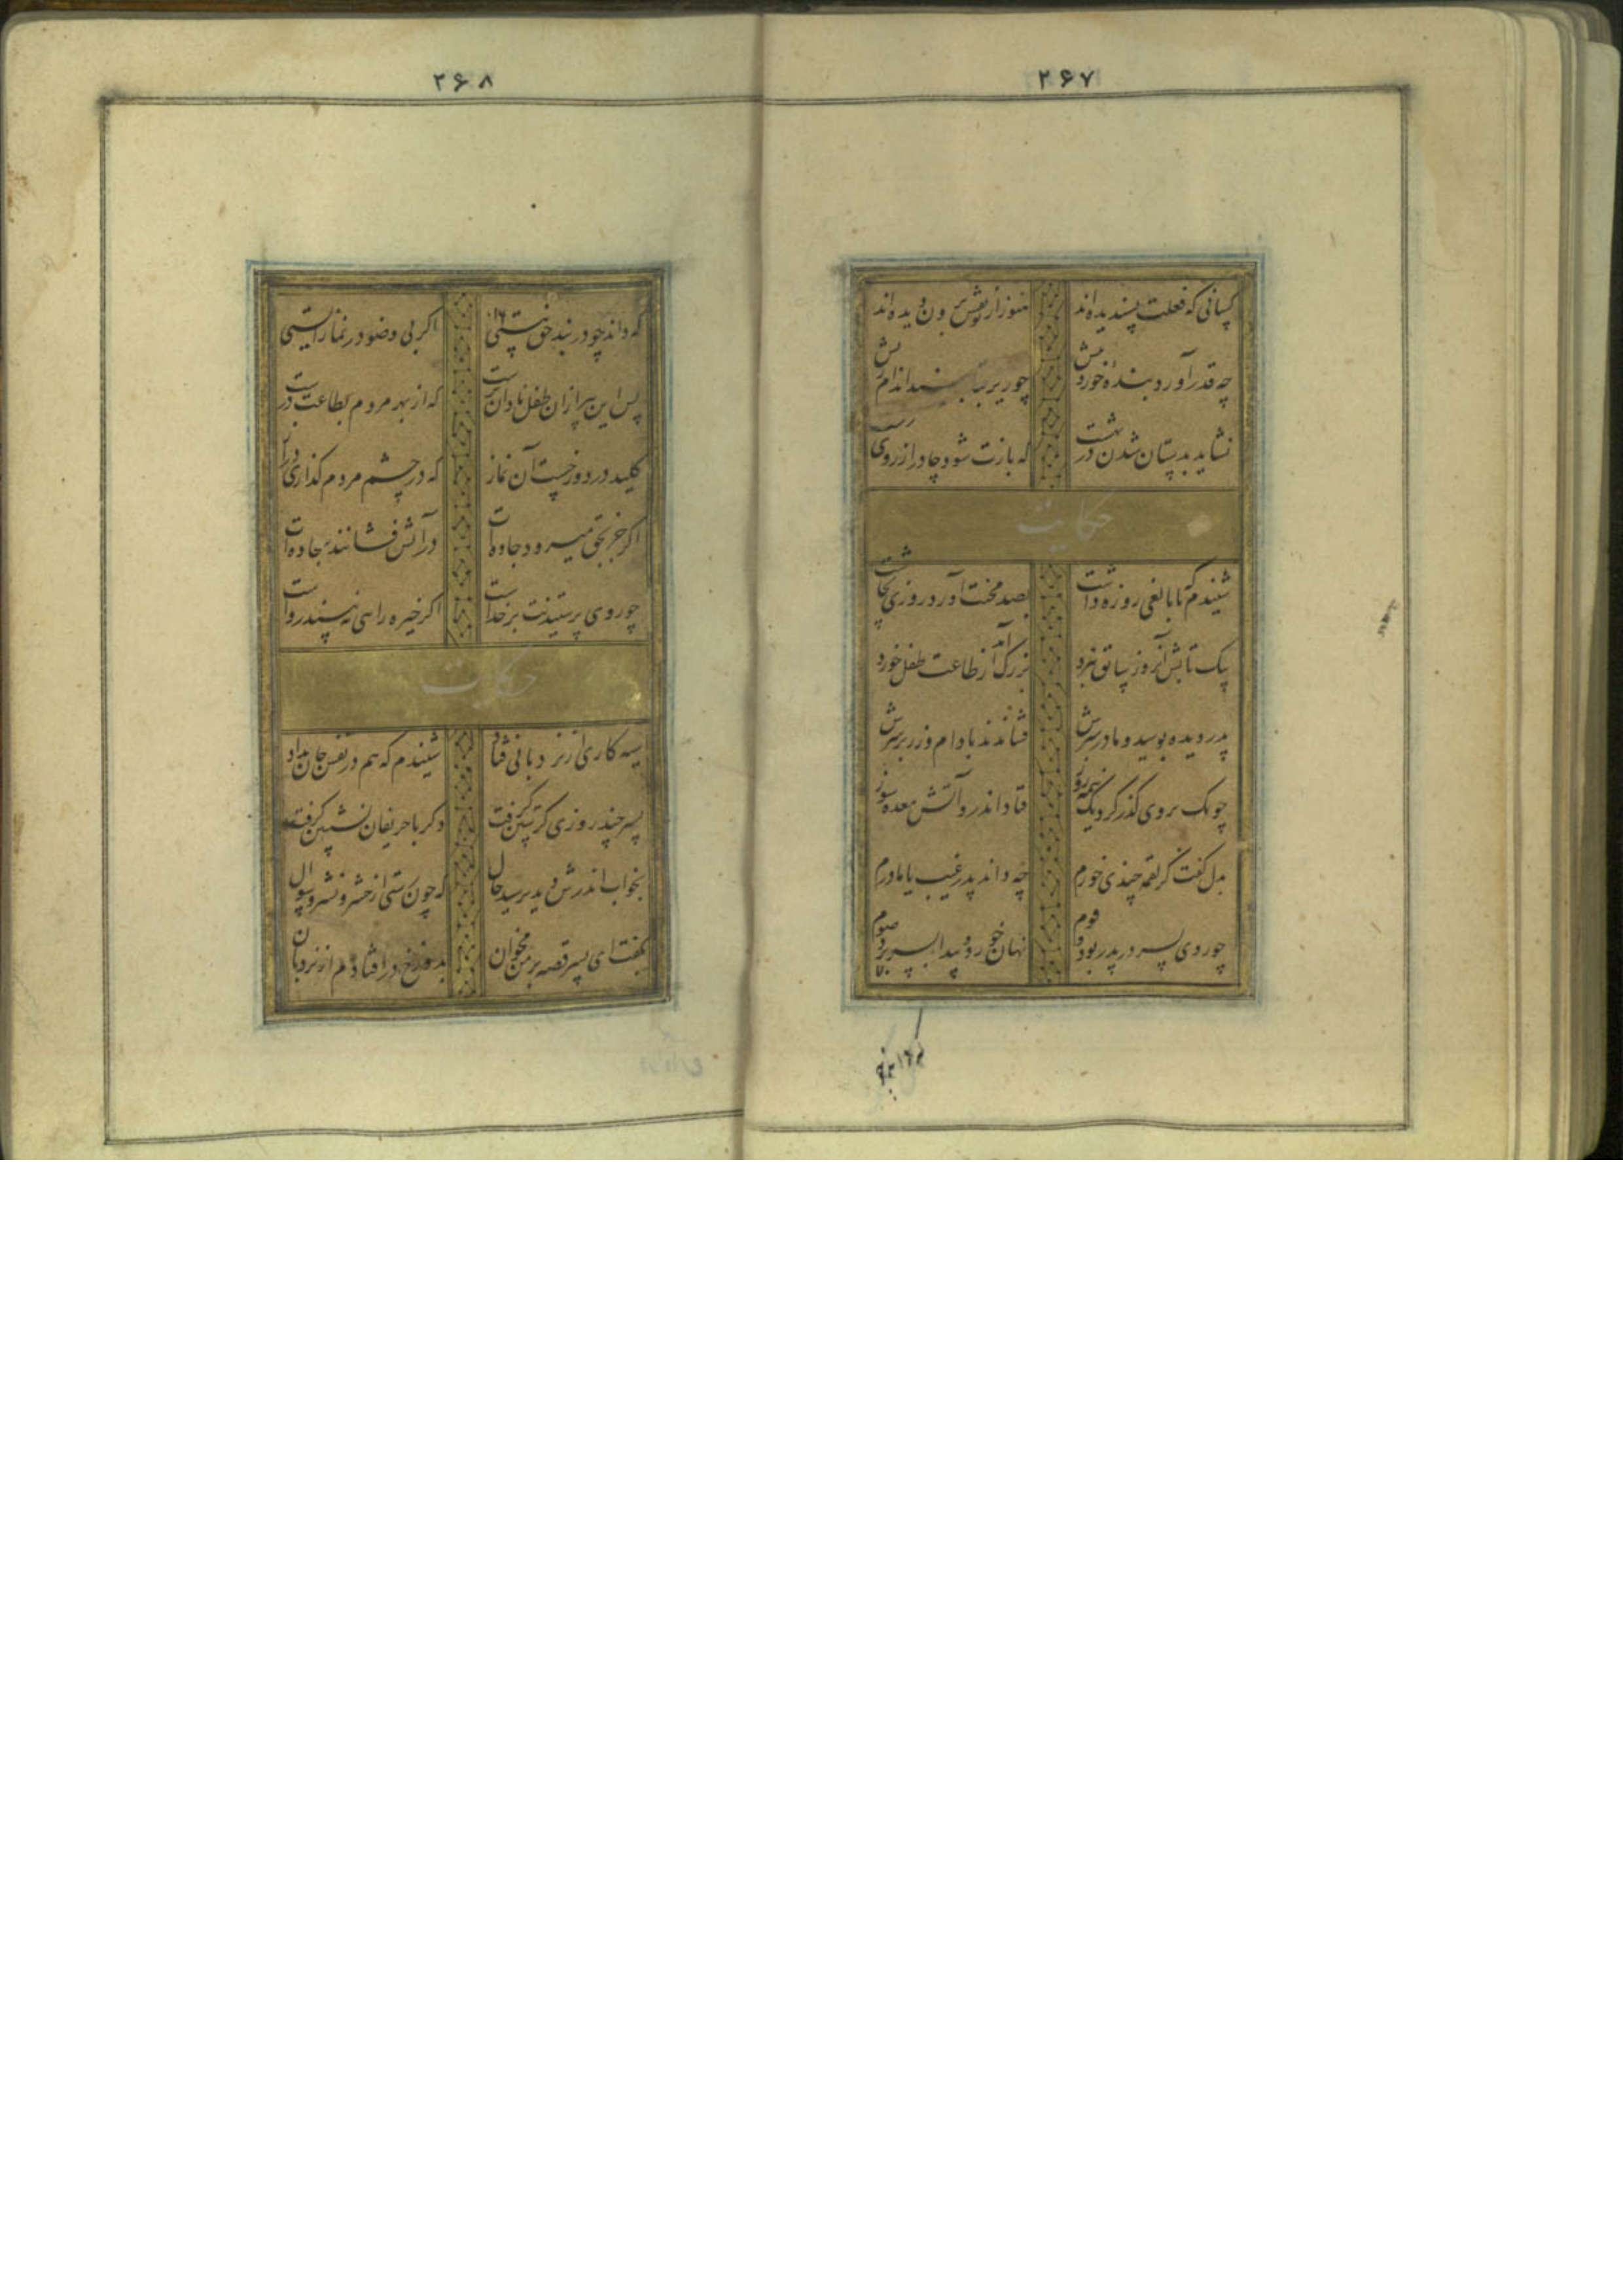 ۲۶۷
کسانی که فعلت پسندیده‌اند هنوز از تو نقش برون دیده‌اند
چه قدر آورد بنده خوردیش که زیر قبا دارد اندام پیش
نشاید بدستان شدن در بهشت که بازت شود چادر از روی زشت
حکایت
شنیدم که نابالغی روزه داشت بصد محنت آورد روزی بچاشت
بزرگ آمدش طاعت طفل خورد
پدر دیده بوسید و مادر سرش فشاندند بادام و زر بر سرش
چو بر وی گذر کرد یک نیمه روز فتاد اندرو آتش معده سوز
بدل گفت گر لقمه چندی خورم چه داند پدر غیب یا مادرم
چو روی پسر در پدر بود و قوم نهان خورد و پیدا بسر برد صوم
۲۶۸
که داند چو در بند حق نیستی اگر بی وضو در نماز ایستی
پس این پیر از آن طفل نادان‌ترست که از بهر مردم بطاعت درست
کلید در دوزخست آن نماز که در چشم مردم گذاری دراز
اگر جز بحق میرود جاده‌ات در آتش فشانند سجاده‌ات
چو روی پرستیدنت بر خداست اگر جبریلت نبیند رواست
حکایت
سیه کاری از نردبانی فتاد شنیدم که هم در نفس جان بداد
پسر چند روزی گرستن گرفت دگر با حریفان نشستن گرفت
بخواب اندرش دید و پرسید حال که چون رستی از حشر و نشر و سوال
بگفت ای پسر قصه بر من مخوان بدوزخ در افتادم از نردبان